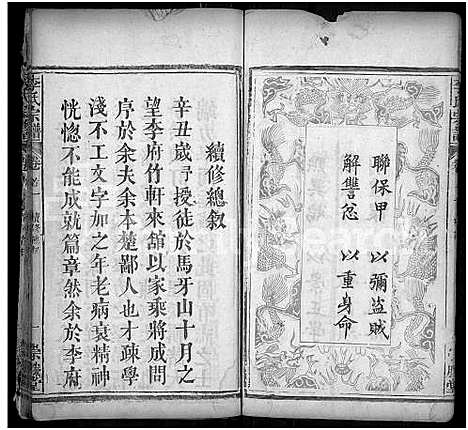 聯保甲　以彌盜賊
解讐忿　以重身命
續修總敘
辛丑歲予授徒於馬牙山十月之
望李府竹軒來舘以家乘將成問
序於余夫余本楚鄙人也才疎學
淺不工文字加之年老病衰精神
恍惚不能成就篇章然余於李府
李氏宗譜
卷首
一